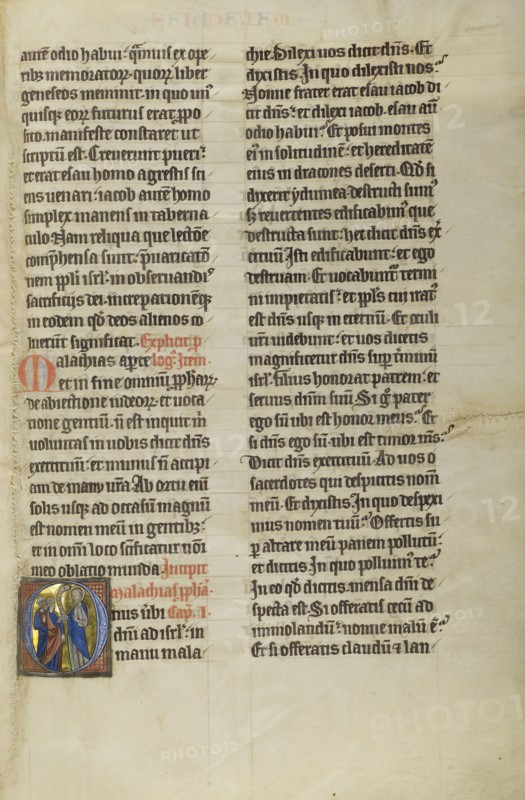 autē odio habui· q̄muis ex ope
ribꝫ memoratoꝝ· quoꝝ liber
geneseos meminit· in quo un
quisqꝫ eoꝝ futurus erat· ꝓpo
sito· manifeste constaret ut
scriptū est· Creuerunt pueri·
et erat esau homo agrestis sci
ens uenari· iacob autē homo
simplex manens in taberna
culo· Nam reliqua que lectōe
comp̄hensa sunt· p̄uaricatō
nem ppli isrl· in obseruandis
sacrificijs dei· increpationēqꝫ
in eodem qd̄ deos alienos co
luerūt significat· Explicit ꝓ
log᷒· Item
Malachias aperte
et in fine omniū ꝓphaꝝ·
de abiectione iudeoꝝ· et uoca
tione gentiū· nō est inquit m̄
uoluntas in uobis dicit dn̄s
exercituū· et munus nō accipi
am de manu ur̄a· Ab ortu enī
solis usqꝫ ad occasum magnū
est nomen meū in gentibꝫ·
et in omī loco sc̄ificatur nōi
meo oblatio munda· Incipit
malachias ꝓpha·
Onus ūbi Cap̄· I·
dn̄i ad isrl· in
manu mala
chie· Dilexi uos dicit dn̄s· Et
dixistis· In quo dilexisti nos·
Nonne frater erat esau iacob di
cit dn̄s· et dilexi iacob· esau aū
odio habui· Et posui montes
ei᷒ in solitudinē· et hereditatē
eius in dracones deserti· Qd̄ si
dixerit ydumea· destructi sum᷒
sꝫ reuertentes edificabim᷒ que
destructa sunt· hec dicit dn̄s ex̄
cituū Isti edificabunt· et ego
destruam· Et uocabunt᷒ termi
ni impietatis· et ppl̄s cui irat᷒
est dn̄s usqꝫ in eternū· Et oculi
uri uidebunt· et uos dicetis
magnificetur dn̄s suꝑ t̄minū
isrl· Filius honorat patrem· et
seruus dn̄m suū· Si gͦ pater
ego sū· ubi est honor meus· Et
si dn̄s ego sū· ubi est timor m̄s·
Dicit dn̄s exercituū· Ad uos o
sacerdotes qui despicitis nom̄
meū· Et dixistis· In quo despexi
mus nomen tuū· Offertis su
ꝑ altare meū panem pollutū·
et dicitis· In quo polluim᷒ te·
In eo qd̄ dicitis· mensa dn̄i de
specta est· Si offeratis cecū ad
immolandū· nonne malū ē·
Et si offeratis claudū ⁊ lan
PHOTO12